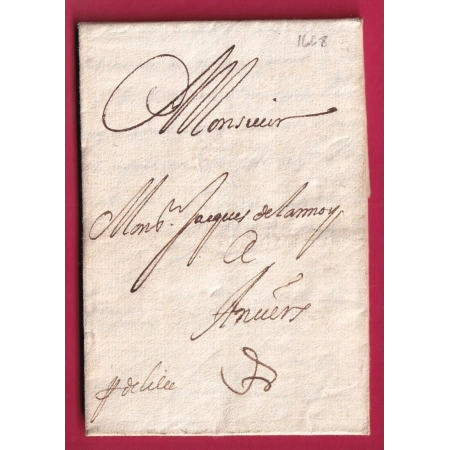 1668
Monsieur
Monsr. Jacques delannoy
A
Anvers
de lille